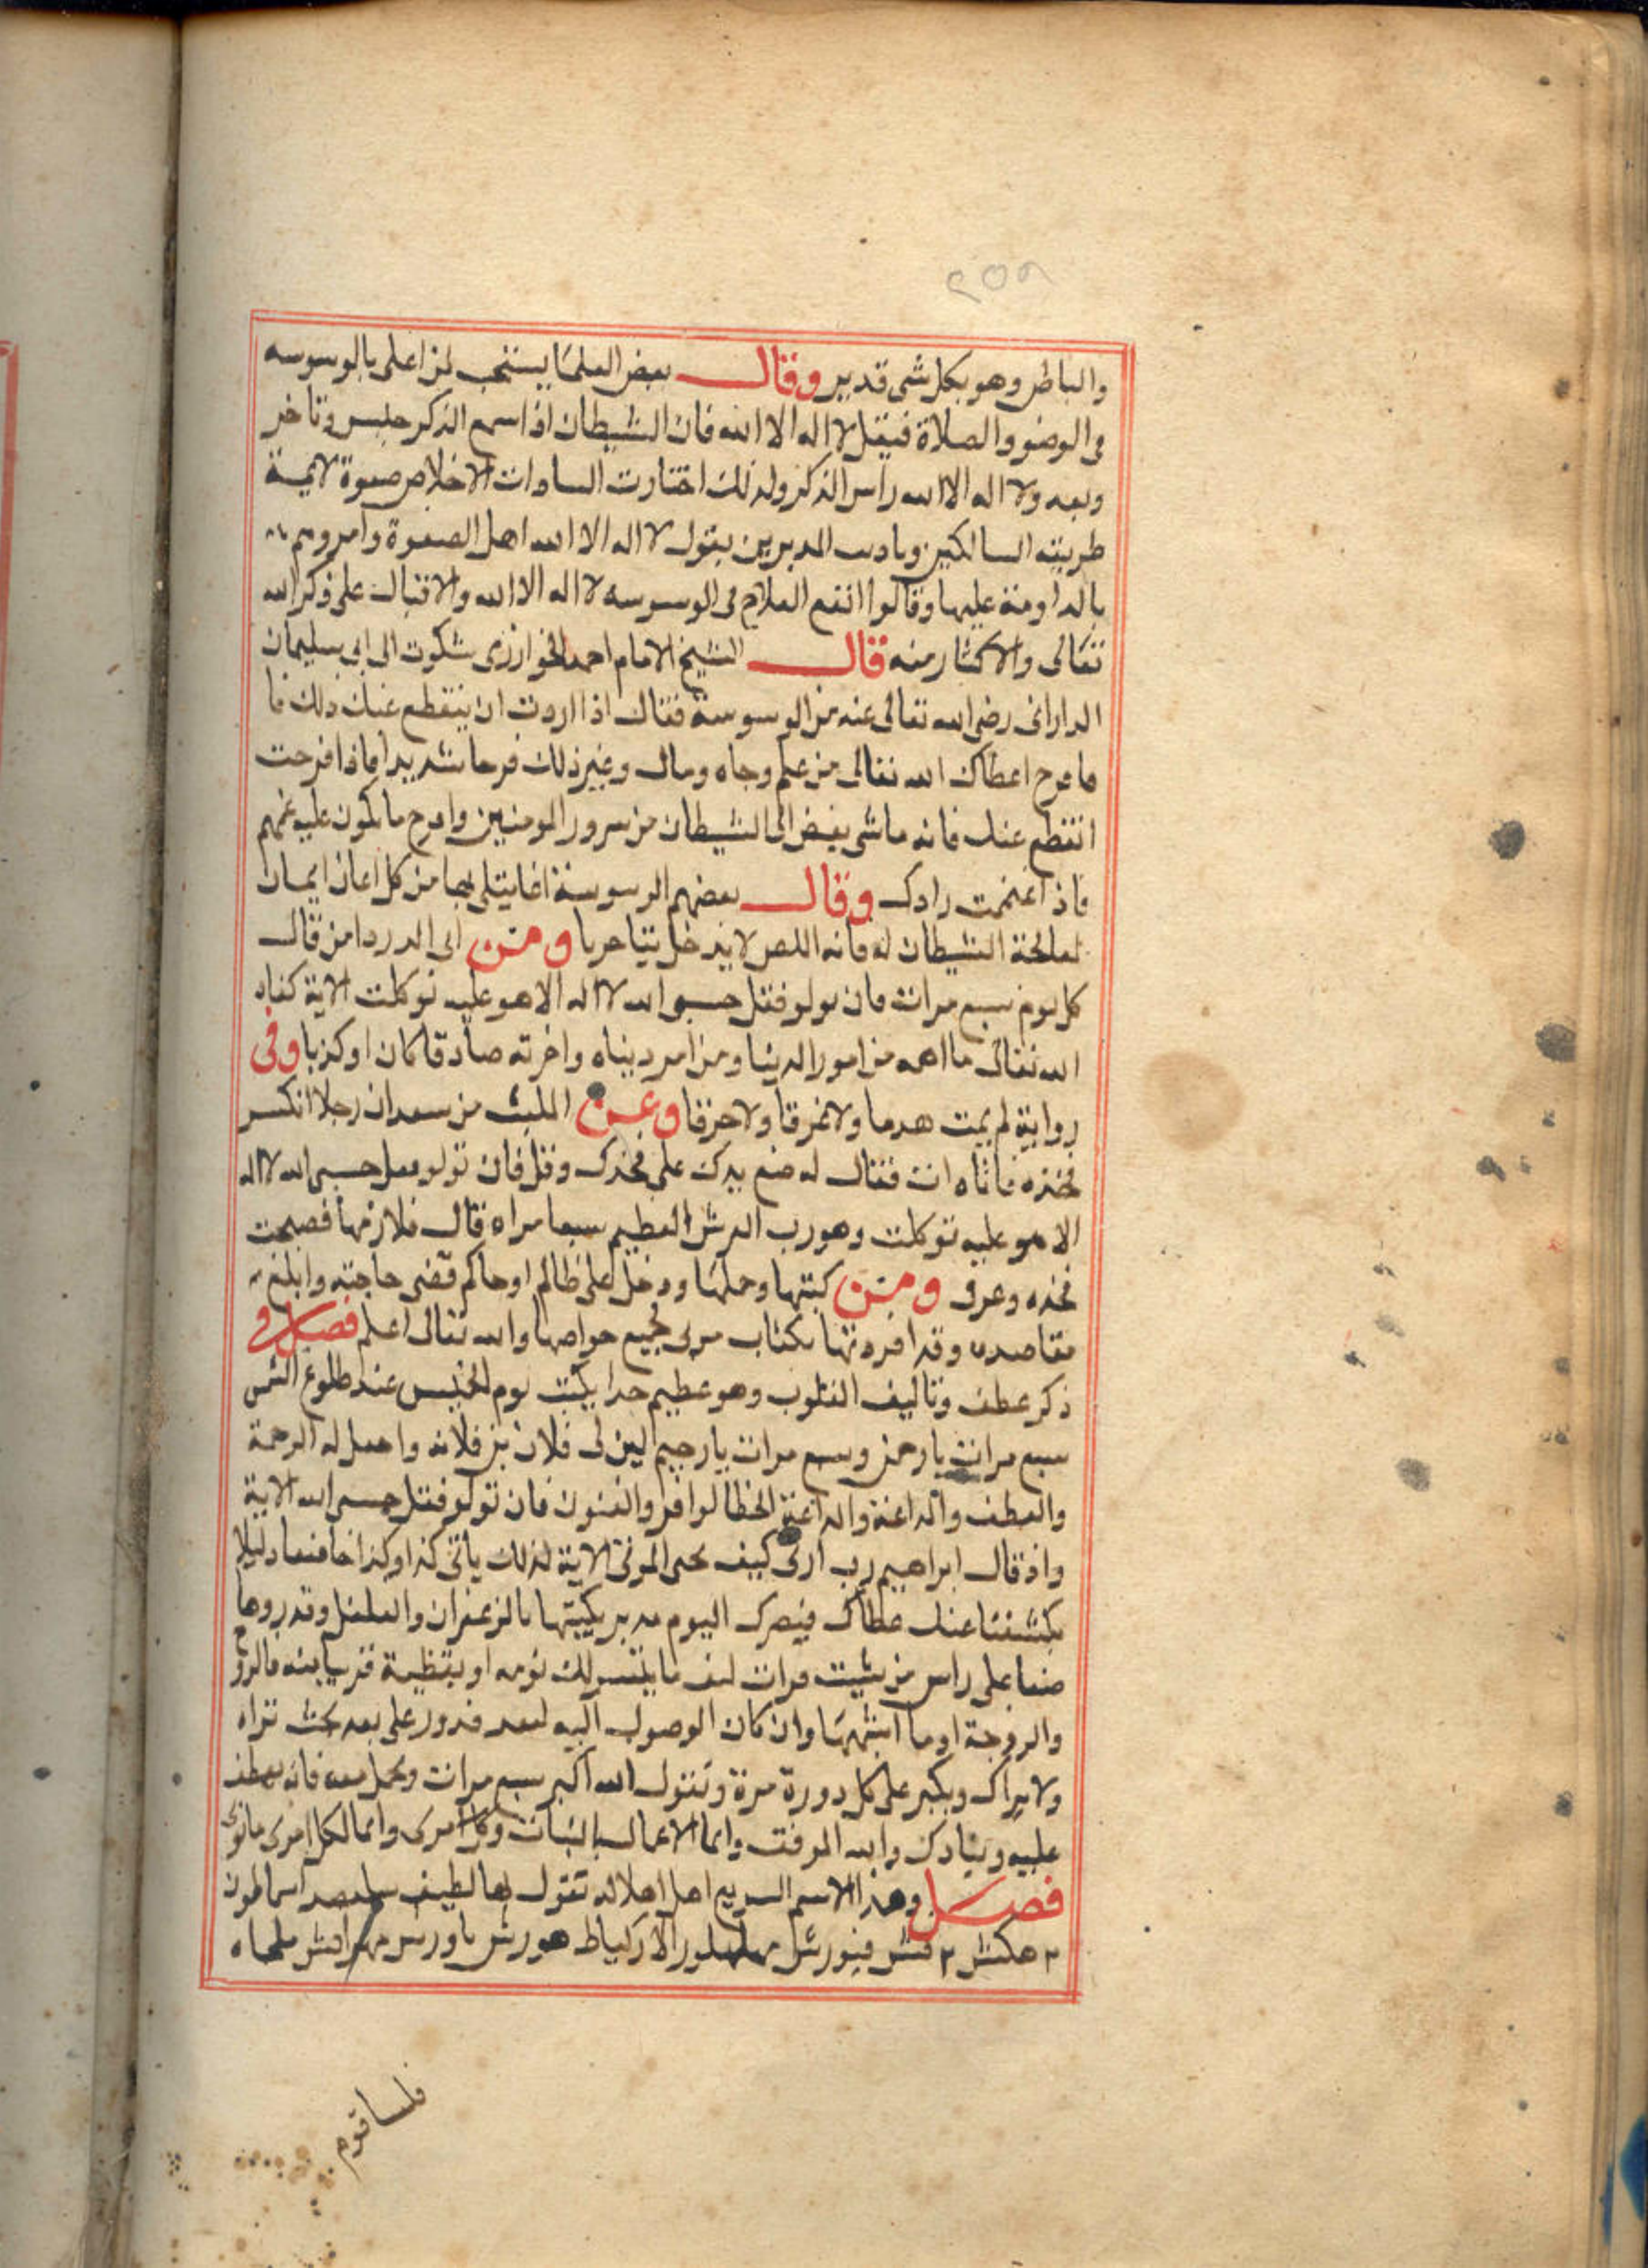 ٢٥٩
والباطن وهو بكل شى قدير وقال بعض العلما يستحب لمن اعلى بالوسوسه
فى الوضو والصلاة فيقل لا اله الا الله فان الشيطان اذا سمع الذكر خنس وتاخر
وبعد ولا اله الا الله راس الذكر ولذلك اختارت السادات الاخلاص صفوة لايمة
طريقه السالكين وتاديب المديرين بقول لا اله الا الله اهل الصفوة وامروهم
بالمداومة عليها وقالوا انفع العلاج فى الوسوسه لا اله الا الله والاقبال على ذكر الله
تعالى والاكثار منه قال الشيخ الامام احمد الخوارزى شكوت الى ابى سليمان
الدارانى رضى الله تعالى عنه من الوسوسة فقال اذا اردت ان ينقطع عنك ذلك فا
فافرح اعطاك الله تعالى من علم وجاه ومال وغير ذلك فرحا شديدا فاذا فرحت
انقطع عنك فانه ما شى يغض الى الشيطان من سرور المومنين وافرح ما يكون عليه غمهم
فاذا اغتممت زادك وقال بعضهم الوسوسة انما يبتلى بها من كل اعان ايمان
لعالحة الشيطان له فانه اللص لا يدخل بيتا خربا ومن ابى الدردا من قال
كل يوم سبع مرات فان تولو فقل حسبى الله لا اله الا هو عليه توكلت الاية كفاه
الله تعالى ما اهمه من امور الدنيا ومن امر ديناه واخرته صادقا كان او كذبا وفى
رواية لم يمت هدما ولا غرقا ولا حرقا وعن الليث من سعد ان رجلا انكسر
فخذه فاتاه ات فقال له ضع يدك على فخذك وقل فان تولو فقل حسبى الله لا اله
الا هو عليه توكلت وهو رب العرش العظيم سبعا مراه قال فلازمها فصبحت
فخذه وعرف ومن كتبها وحملها ودخل على ظالم او حاكم قضى حاجته وابلغ
مقاصده وقد افردتها بكتاب سرى لجميع خواصها والله تعالى اعلم فصل فى
ذكر عطف وتاليف القلوب وهو عظيم جدا يكتب يوم الخميس عند طلوع الشمس
سبع مرات يا رحمن وسبع مرات يا رحيم لين لى فلان بن فلانه واجعل له الرحمة
والعطف والداعنة والداعنة فان تولو فقل حسبى الله الاية
واذ قال ابراهيم رب ارنى كيف تحى الموتى الاية لذلك ياتى كذا وكذا خاضعا ذليلا
فكشفنا عنك غطاك فبصرك اليوم حديد يكتبها بالزعفران والفلفل وتدروها
على راس من شيت
والزوجة او ما اشبهها وان كان الوصول اليه لبعد فدور على بعد بحيث تراه
ولا يراك ويكبر على كل دورة مرة وتقول الله اكبر سبع مرات وتحمل معه فانه يعطف
عليه وينادك والله الموفق وانما الاعمال بالنيات وكل امرى وانما لكل امرى ما نوى
فصل وهذا الاسم السريع تقول
٢ هكش ٢
فلسا قوم